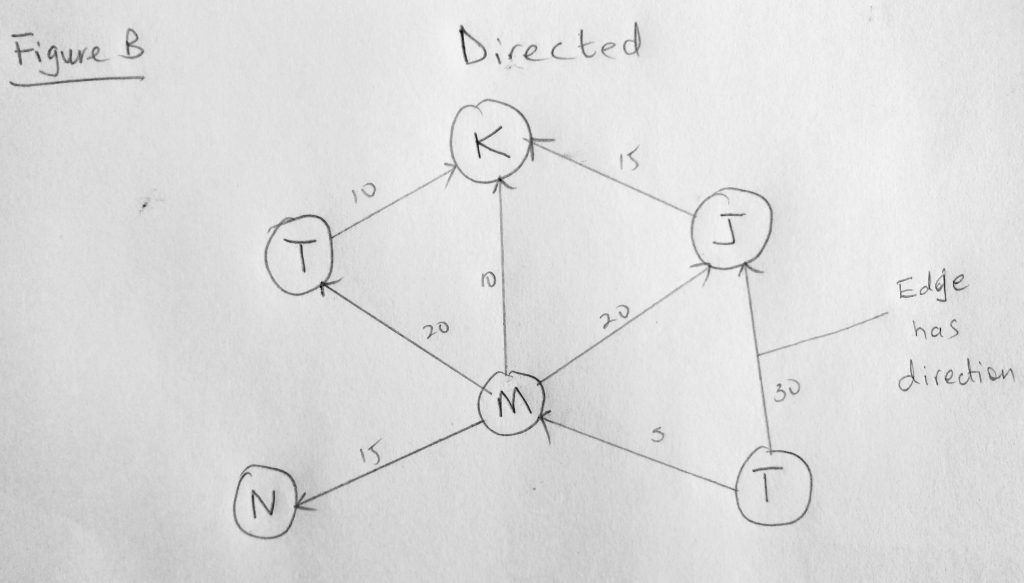 Figure B
Directed
K
15
10
J
T
10
20
20
Edge
has
direction
30
M
5
15
T
N